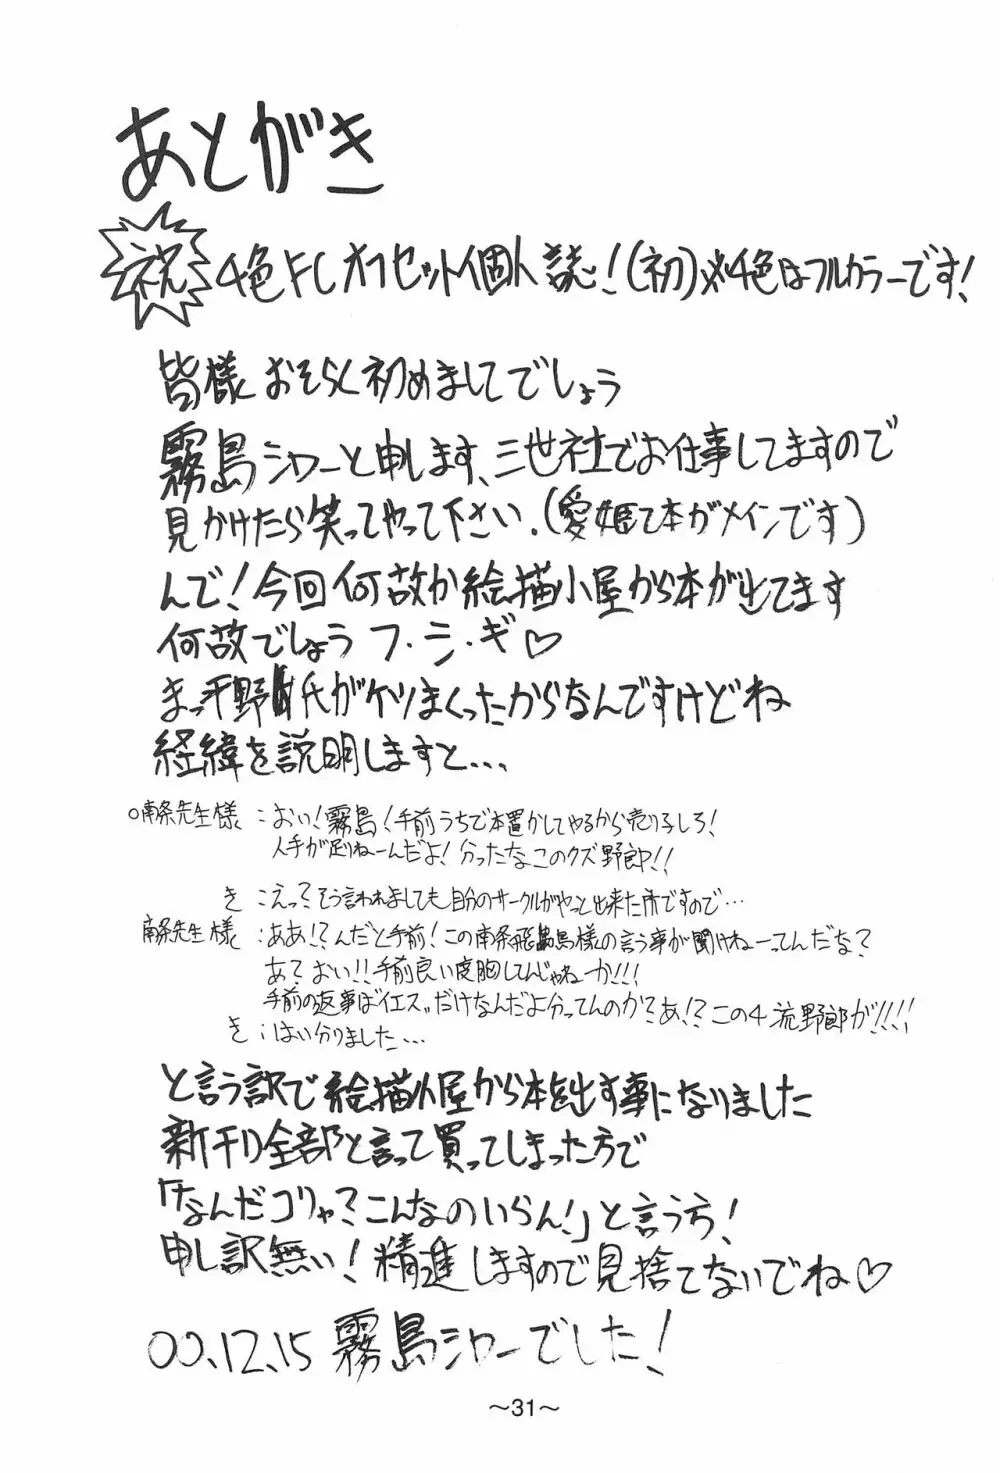 あとがき
祝 4色FCオフセット個人誌!(初)※4色はフルカラーです!
皆様おそらく初めましてでしょう
霧島シャーと申します、三世社でお仕事してますので
見かけたら笑ってやって下さい.(愛姫て本がメインです)
んで!今回何故か絵描小屋から本が出てます
何故でしょうフ・シ・ギ♡
まっ平野氏がケツまくったからなんですけどね
経緯を説明しますと...
○南条先生様:おい!霧島!手前うちで本置かしてやるから売り子しろ!
人手が足りねーんだよ!分ったなこのクズ野郎!!
き:えっ?そう言われましても自分のサークルがやっと出来た所ですので...
南条先生様:ああ!?んだと手前!この南条飛鳥様の言う事が聞けねーってんだな?
あ?おい!!手前良い度胸してんじゃねーか!!!
手前の返事は"イエス"だけなんだよ分ってんのか?あ!?この4流野郎が!!!!
き:はい分りました...
と言う訳で絵描小屋から本を出す事になりました
新刊全部と言って買ってしまった方で
「なんだコリャ?こんなのいらん!」と言う方!
申し訳無い!精進しますので見捨てないでね♡
00.12.15 霧島シャーでした!
～31～